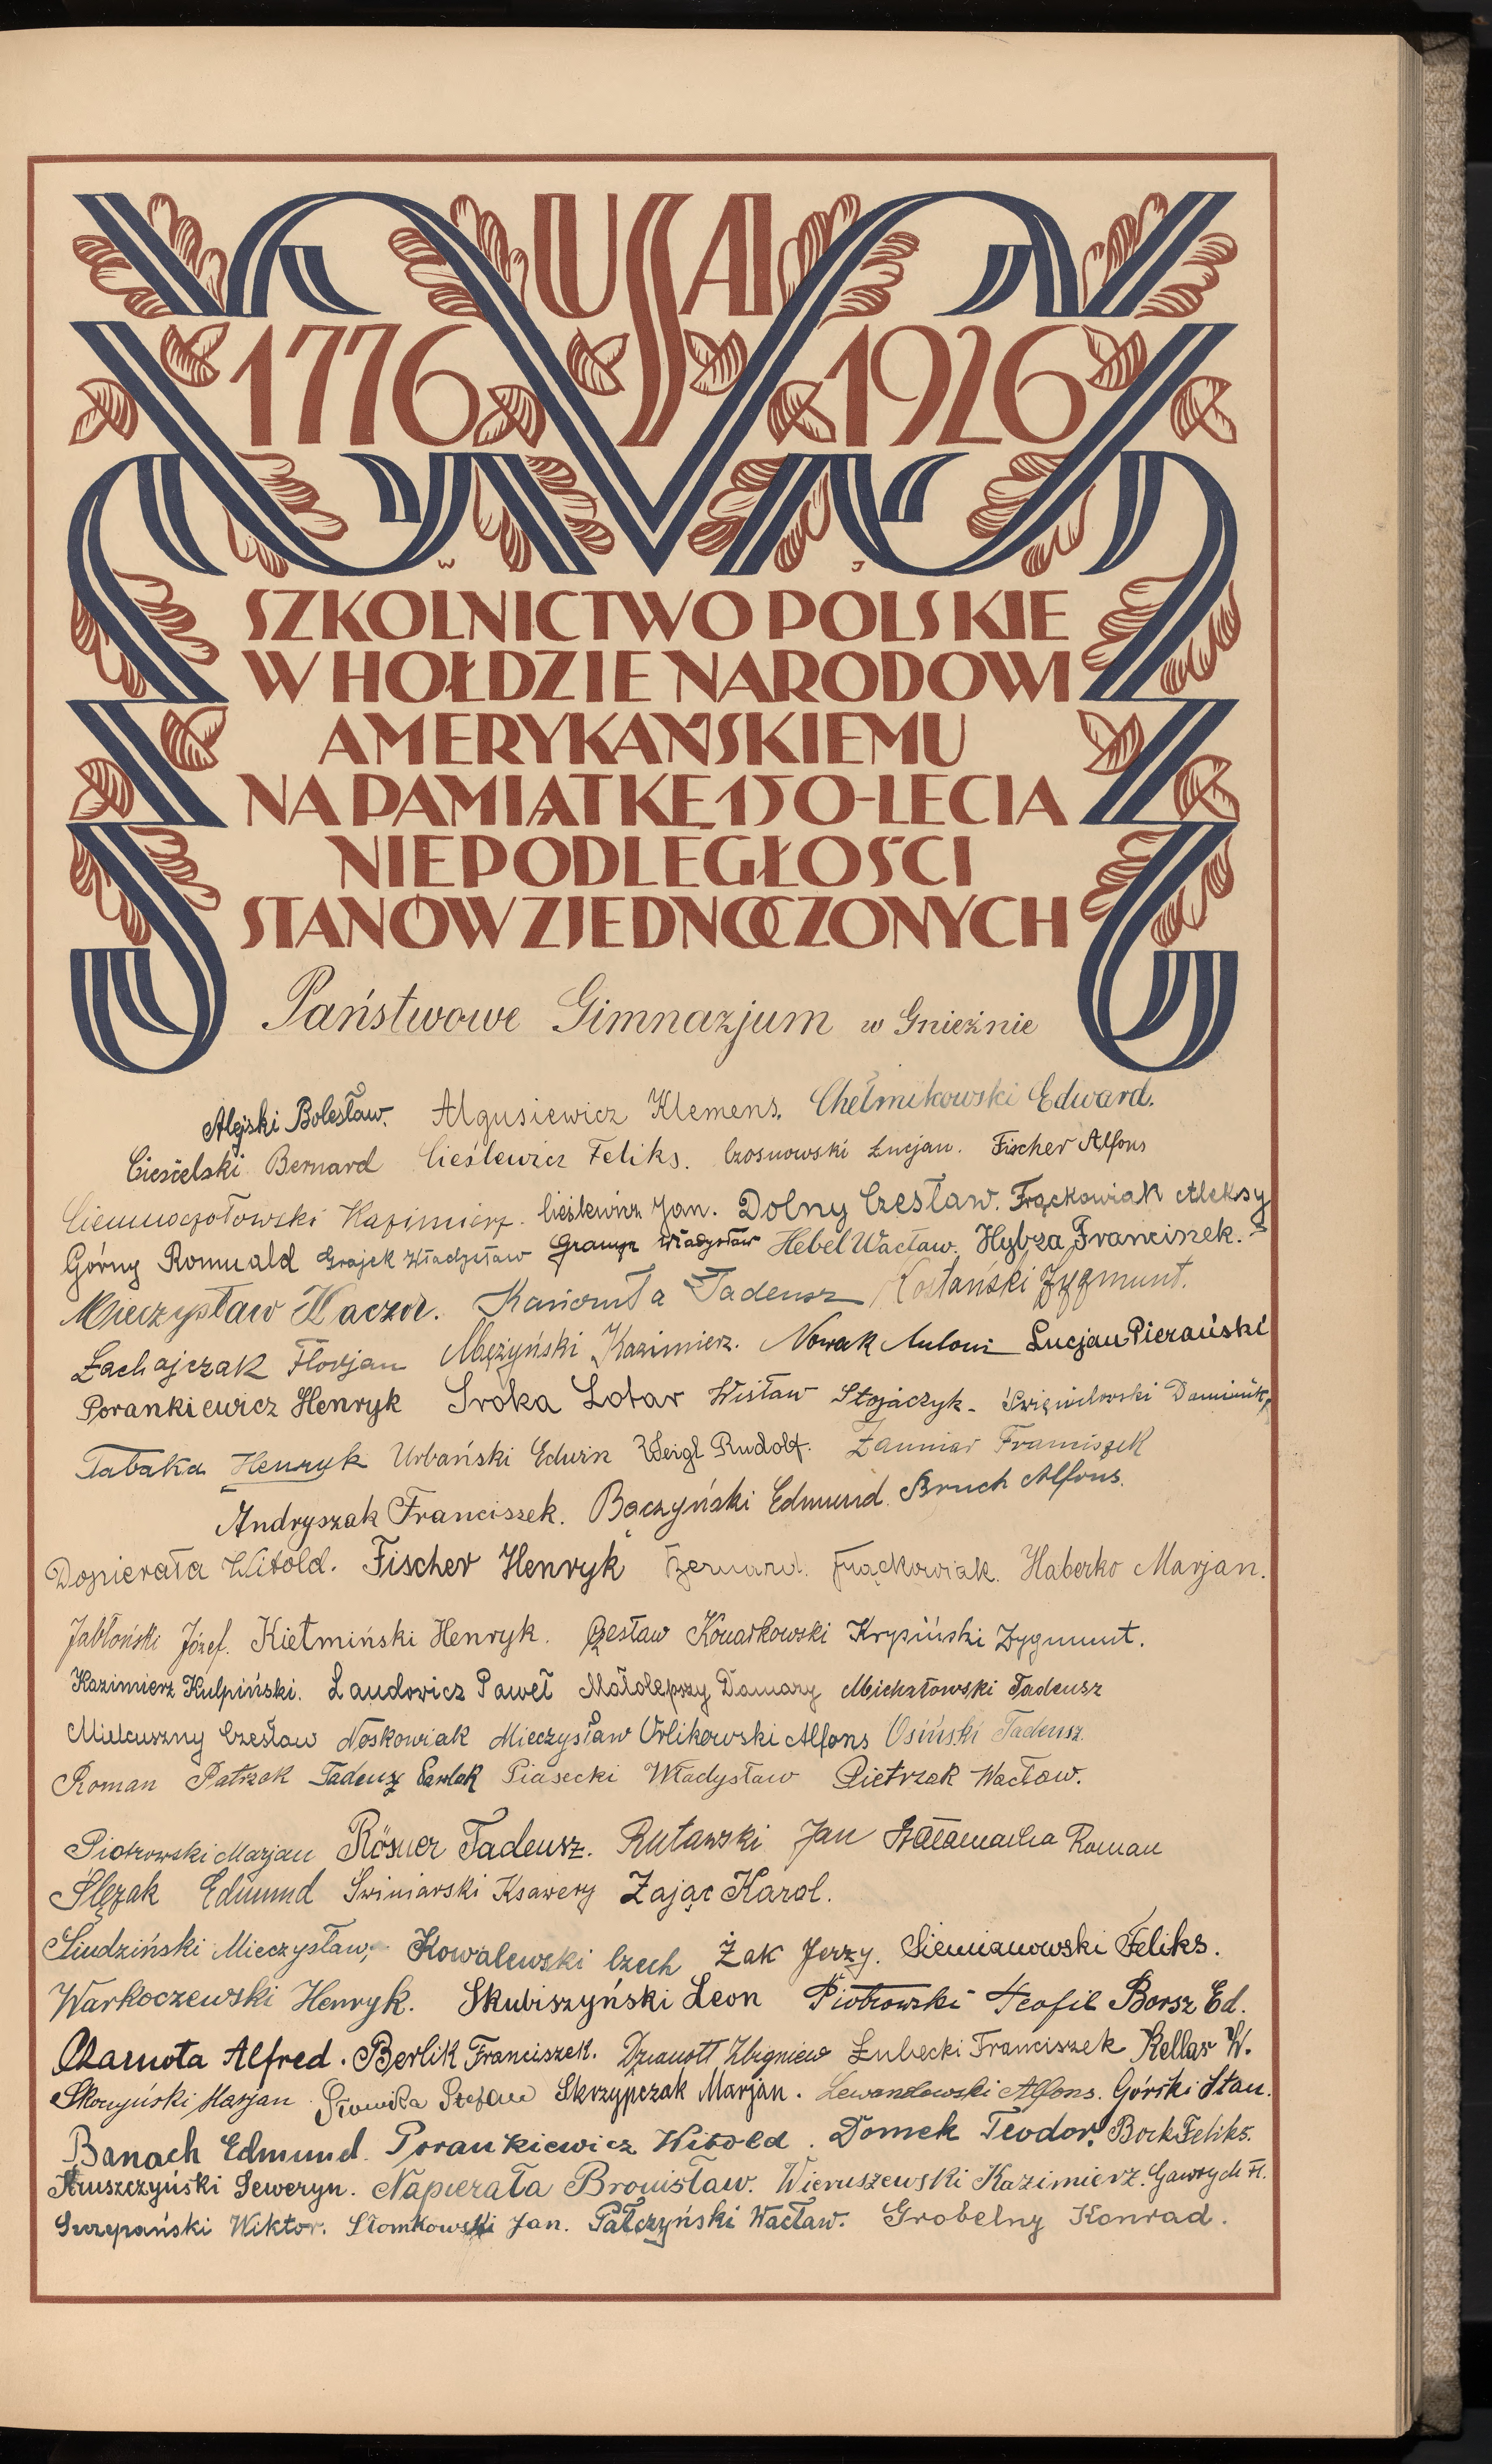 USA
1776 1926
W J
SZKOLNICTWO POLSKIE
W HOŁDZIE NARODOWI
AMERYKAŃSKIEMU
NA PAMIĄTKĘ 150-LECIA
NIEPODLEGŁOŚCI
STANÓW ZJEDNOCZONYCH
Państwowe Gimnazjum w Gnieźnie
Alejski Bolesław. Algusiewicz Klemens. Chełmikowski Edward.
Ciesielski Bernard Cieślewicz Feliks. Czosnowski Lucjan. Fischer Alfons
Ciemnoczołowski Kazimierz. Cieślewicz Jan. Dolny Czesław. Frąckowiak Aleksy
Górny Romuald Grajek Władysław Władysław Hebel Wacław. Hybza Franciszek.
Mieczysław Kaczor. Tadeusz Kostański Zygmunt.
Łachajczak Florjan Mężyński Kazimierz. Nowak Antoni Lucjan Pierański
Porankiewicz Henryk Sroka Lotar Wisław Stojaczyk. Dominik
Tabaka Henryk Urbański Edwin Weigl Rudolf. Zanniar Franciszek
Andryszak Franciszek. Bączyński Edmund. Bruch Alfons.
Dopierała Witold. Fischer Henryk Bernard Frąckowiak. Haberko Marjan.
Jabłoński Józef. Kiełmiński Henryk. Czesław Konarkowski Krypiński Zygmunt.
Kazimierz Kulpiński. Laudowicz Paweł Małolepszy Damazy Michałowski Tadeusz
Mielcuszny Czesław Noskowiak Mieczysław Orlikowski Alfons Osiński Tadeusz.
Roman Patrzak Tadeusz Pawlak Piasecki Władysław Pietrzak Wacław.
Piotrowski Marjan Rösner Tadeusz. Rutawski Jan Szałamacha Roman
Ślęzak Edmund Świniarski Ksawery Zając Karol.
Siudziński Mieczysław, Kowalewski Czech Żak Jerzy. Siemianowski Feliks.
Warkoczewski Henryk. Skubiszyński Leon Piotrowski Teofil Borsz Ed.
Czarnota Alfred. Berlik Franciszek. Dzianott Zbigniew Łubecki Franciszek Kellar W.
Skoryński Marjan Słomka Stefan Skrzypczak Marjan. Lewandowski Alfons. Górski Stan.
Banach Edmund. Porankiewicz Witold. Domek Teodor. Bock Feliks.
Struszczyński Seweryn. Napierała Bronisław. Wieruszewski Kazimierz. Gawrych Fl.
Szczepański Wiktor. Słomkowski Jan. Pałczyński Wacław. Grobelny Konrad.